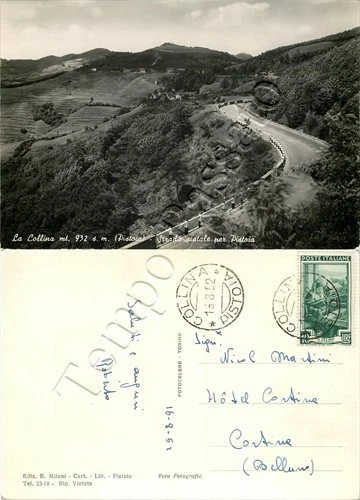 La Collina mt. 932 s. m. (Pistoia) - Strada statale per Pistoia
Saluti e auguri
Roberto
16-8-52
FOTOCELERE - TORINO
COLLINA
PISTOIA
16.8.52
POSTE ITALIANE
Sign.
Nicol Martini
Hôtel Cortina
Cortina
(Belluno)
Ediz. B. Milani - Cart. - Lib. - Pistoia
Tel. 23-18 - Rip. Vietata
Vera Fotografia